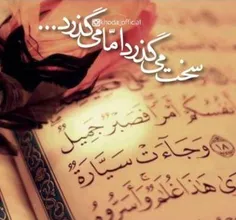 سخت می گذرد امّا می گذرد...
لَكُمْ أَنفُسُكُمْ أَمْرًا فَصَبْرٌ جَمِيلٌ
١٨ وَجَاءَتْ سَيَّارَةٌ
هَٰذَا غُلَامٌ وَأَسَرُّوهُ